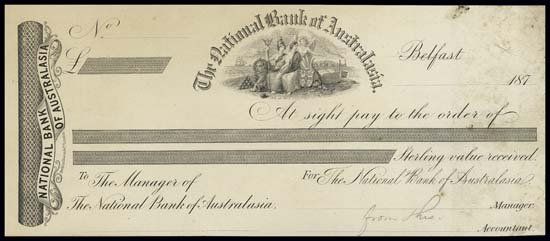 No
The National Bank of Australasia.
£
Belfast
187
NATIONAL BANK
OF AUSTRALASIA
At sight pay to the order of
Sterling value received.
To The Manager of
For The National Bank of Australasia
The National Bank of Australasia.
Manager.
from this
Accountant.